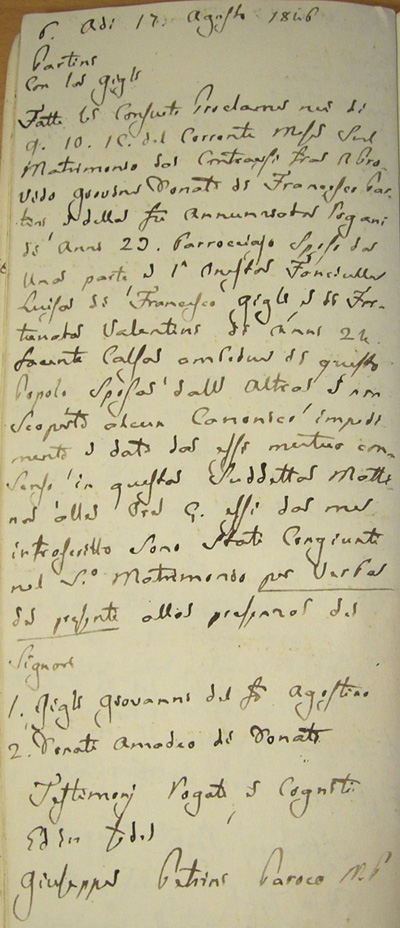 6. Adi 17. Agosto 1846
Bartini
con la Gigli
Fatte le Consuete Proclame nei dì
9. 10. 15. del Corrente Mese sul
Matrimonio da Contrarsi fra
Giovane Donato di Francesco Bar-
tini e della fu Annunziata Pagani
di Anni 29. Parrocciano Sposo da
una parte e l'Onesta Fanciulla
Luisa di Francesco Gigli e di For-
tunata Valentini di Anni 24.
facente Casa ambedue di questo
Popolo Sposa dall'Altra e non
scoperto alcun Canonico impedi-
mento e dato da essi mutuo con-
senso in questa Suddetta Matti-
na alle Ore 9. essi da me
infrascritto sono stati Congiunti
nel S.º Matrimonio per Verba
de presenti alla presenza dei
Signori
1. Gigli Giovanni del fu Agostino
2. Donati Amadeo di Donato
Testimonj Rogati e Cogniti
Ed in fede
Giuseppe Petrini Paroco M. P.